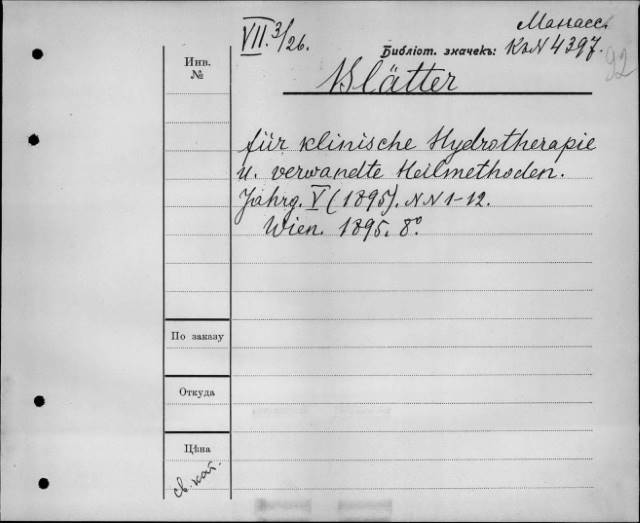 Манасс.
VII. 3/26.
Библіот. значекъ: К2N 4397.
92
Инв.
№
Blätter
für klinische Hydrotherapie
u. verwandte Heilmethoden.
Jahrg. V (1895). NN 1-12.
Wien. 1895. 8°.
По заказу
Откуда
Цѣна
св. кат.